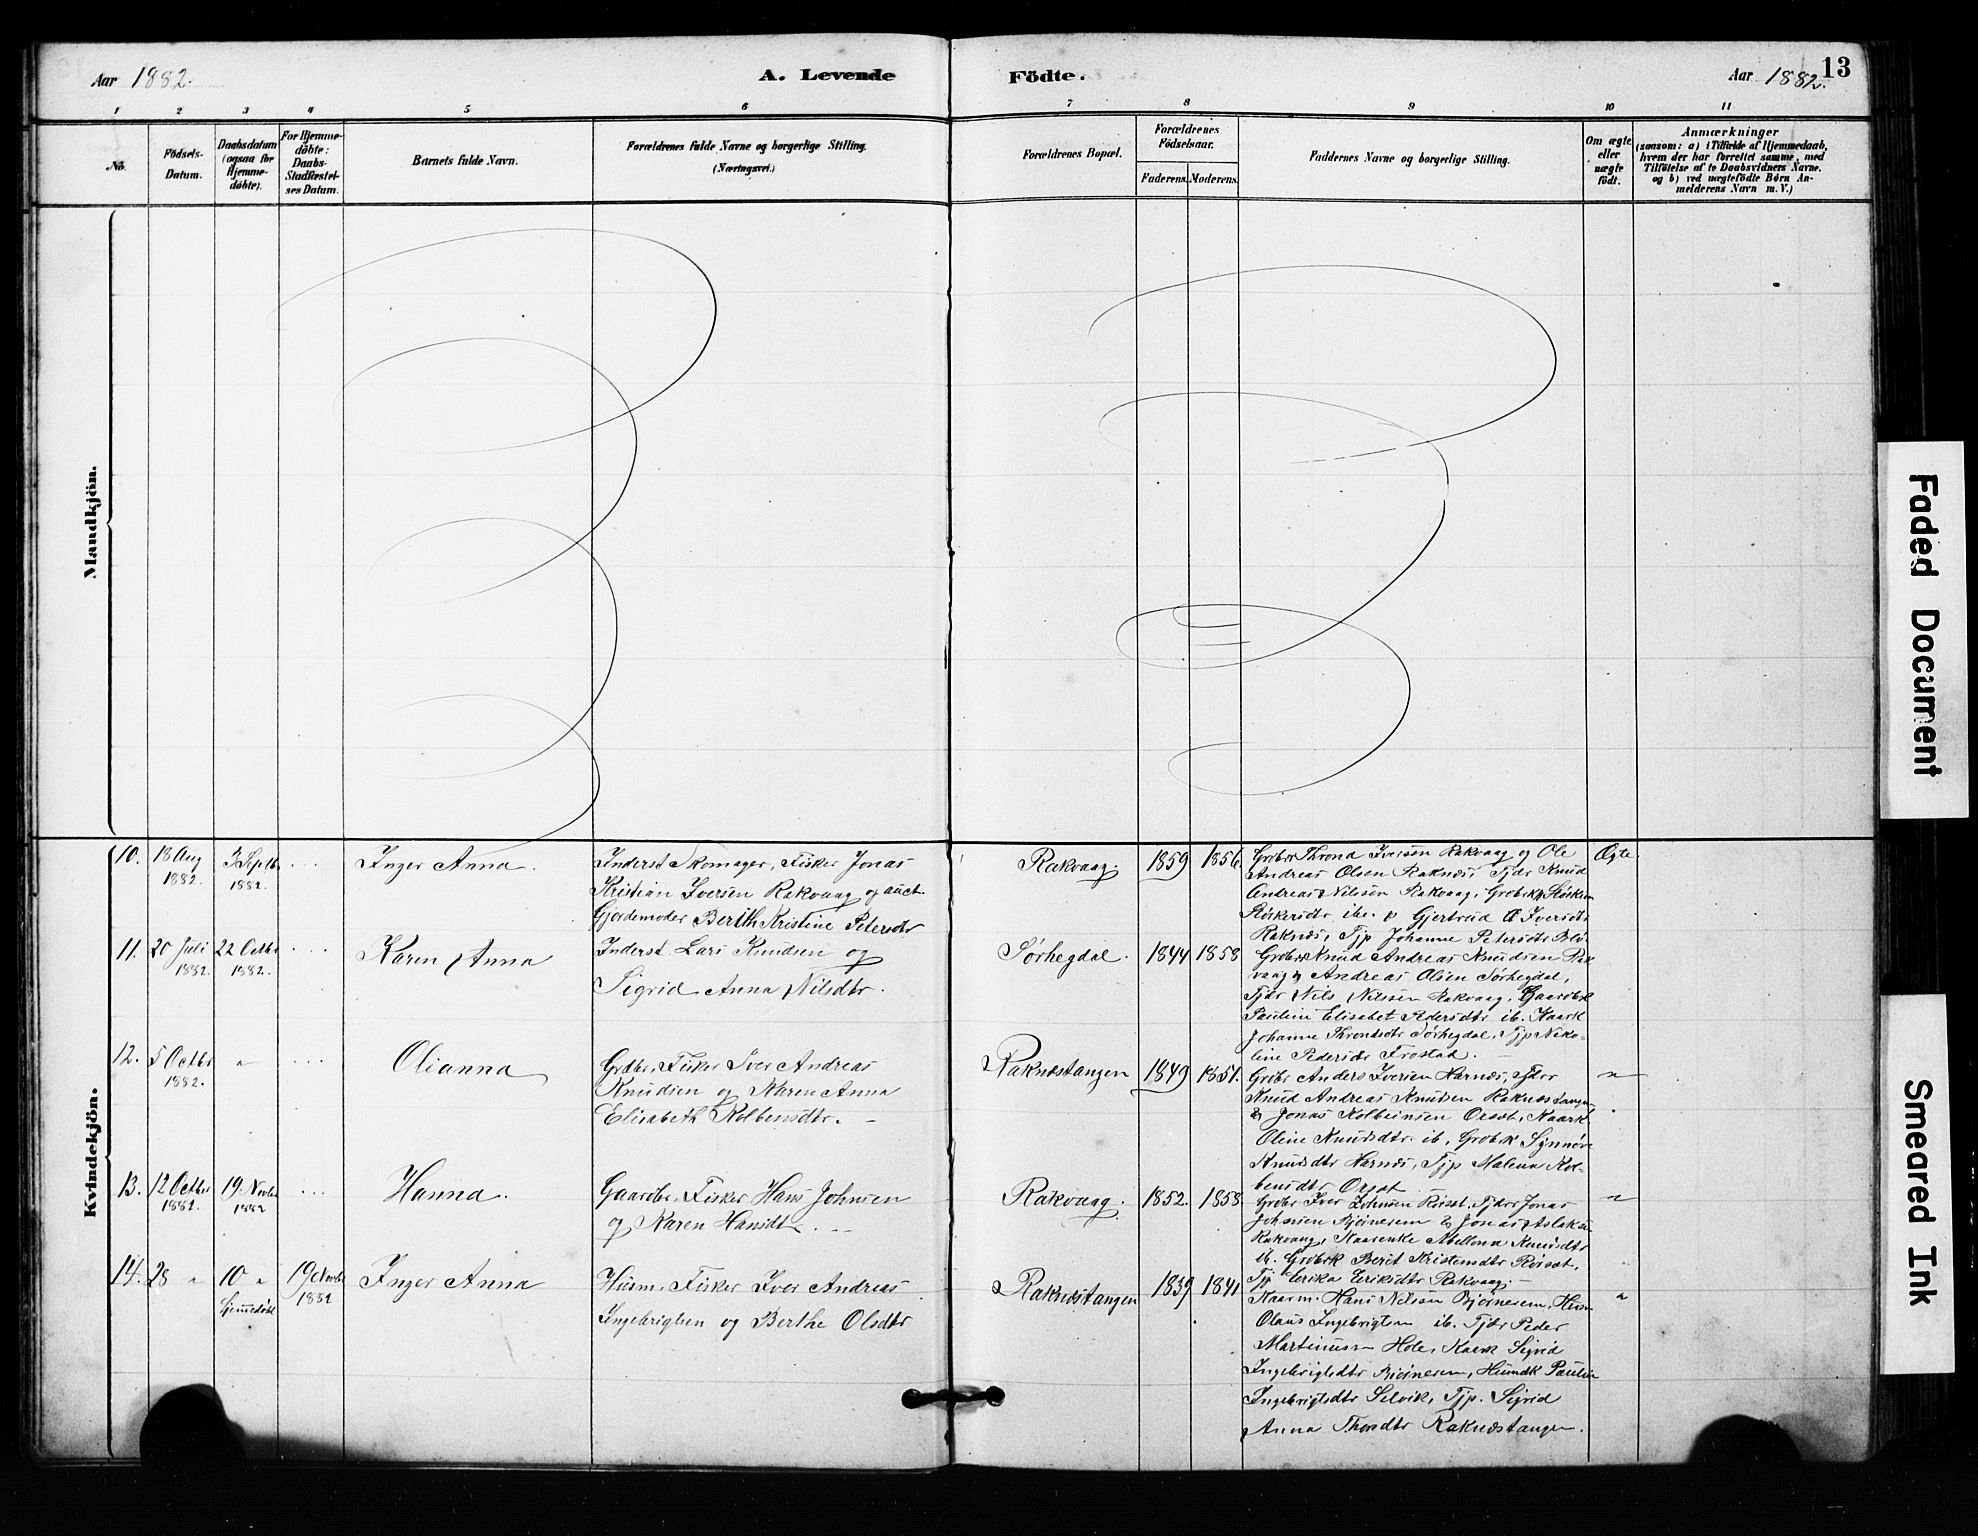 Aar 1882.
A. Levende Födte.
Aar 1882. 13
1 2 3 4 5 6 7 8 9 10 11
No.
Födsels-
Datum.
Daabsdatum
(ogsaa for
Hjemme-
döbte).
For Hjemme-
döbte:
Daabs-
Stadfæstel-
ses Datum.
Barnets fulde Navn.
Forældrenes fulde Navne og borgerlige Stilling.
(Næringsvei.)
Forældrenes Bopæl.
Forældrenes
Födselsaar.
Faderens. Moderens.
Faddernes Navne og borgerlige Stilling.
Om ægte
eller
uægte
födt.
Anmærkninger
(saasom: a) i Tilfælde af Hjemmedaab,
hvem der har forrettet samme, med
Tilföielse af te Daabsvidners Navne,
og b) ved uægtefödte Börn An-
melderens Navn m. V.)
Mandkjön.
Kvindekjön.
10. 18 Aug
1882.
3 Septb.
1882.
Inger Anna.
Inderst Skomager, Fisker Jonas
Kristian Iversen Rakvaag og
Gjordemoder Berith Kristine Petersdtr
Rakvaag. 1859 1856.
Grdbr Thrond Iversen Rakvaag og Ole
Andreas Olsen Raknæs, Tjdr Knud
Andreas Nilssen Rakvaag,
ibe. Gjertrud Iversdtr
Raknæs, Tjp Johanne Petersdtr
Ægte.
11. 20 Juli
1882.
22 Octbr
1882.
Karen Anna
Inderst Lars Knudsen og
Sigrid Anna Nilsdtr.
Sørhegdal. 1844 1858
Grdbr Knud Andreas Knudsen Rak-
vaag & Andreas Olsen Sørhegdal,
Tjdr Nils Nilssen Rakvaag,
Pauline Elisabet Pedersdtr ib. Kaark
Johanne Throndsdtr Sørhegdal, Tjp Niko-
line Pedersdtr Frostad.
12. 5 Octbr
1882.
"
Olianna
Grdbr, Fisker Iver Andreas
Knudsen og Karen Anna
Elisabeth Kolbensdtr. –
Raknæstangen 1849 1851.
Grdbr Anders Iversen Harnæs, Tjdr
Knud Andreas Knudsen Raknæstangen
& Jonas Kolbeinsen Orset, Kaark
Oline Knudsdtr ib, Grdbrk Synnøve
Knudsdtr Harnæs, Tjp Malena Kol-
bensdtr Orset
"
13. 12 Octbr
1882.
19 Novbr
1882
Hanna.
Gaardbr, Fisker Hans Johnsen
og Karen Hansdtr. –
Rakvaag. 1852. 1858.
Grdbr Iver Johnsen Røsset, Tjdr Jonas
Johnsen Bjørnerem & Jonas Aslaksen
Rakvaag, Kaarenke Mellona Knudsdtr
ib. Grdbrk Berit Kristensdtr Røsset,
Tjp Erika Eriksdtr Rakvaag. –
"
14. 28 "
10 "
Hjemmedøbt
19 Novbr
1882
Inger Anna
Husm. Fisker Iver Andreas
Ingebrigtsen og Berthe Olsdtr
Raknæstangen 1839 1841
Kaarm. Hans Nilsen Bjørnerem, Husm
Olaus Ingebrigtsen ib. Tjdr Peder
Martinussen Hole, Kaark Sigrid
Ingebrigtsdtr Bjørnerem, Husmdk Pauline
Ingebrigtsdtr Selvik, Tjp. Sigrid
Anna Throndtr Raknæstangen.
"
Faded Document
Smeared Ink